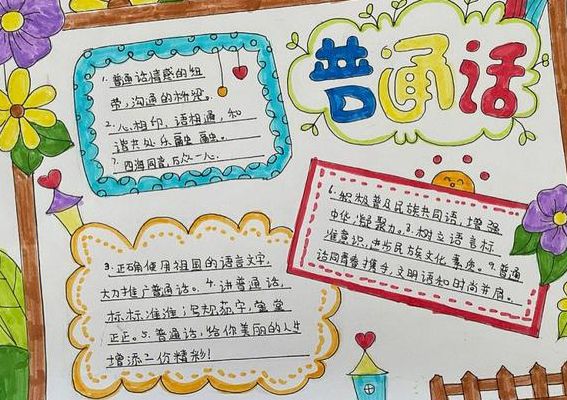 普通话
1.普通话情感的纽
带,沟通的桥梁。
2.心相印,语相通,和
谐共处乐融融。
7.四海同音,万众一心.
6.积极普及民族共同语,增强
中华凝聚力。8.树立语言标
准意识,进步民族文化素质。9.普通
话同青春携手,文明语和时尚并肩。
3.正确使用祖国的语言文字,
大力推广普通话。4.讲普通话,
标标准准;写规范字,堂堂
正正。5.普通话,给你美丽的人生
增添一份精彩!